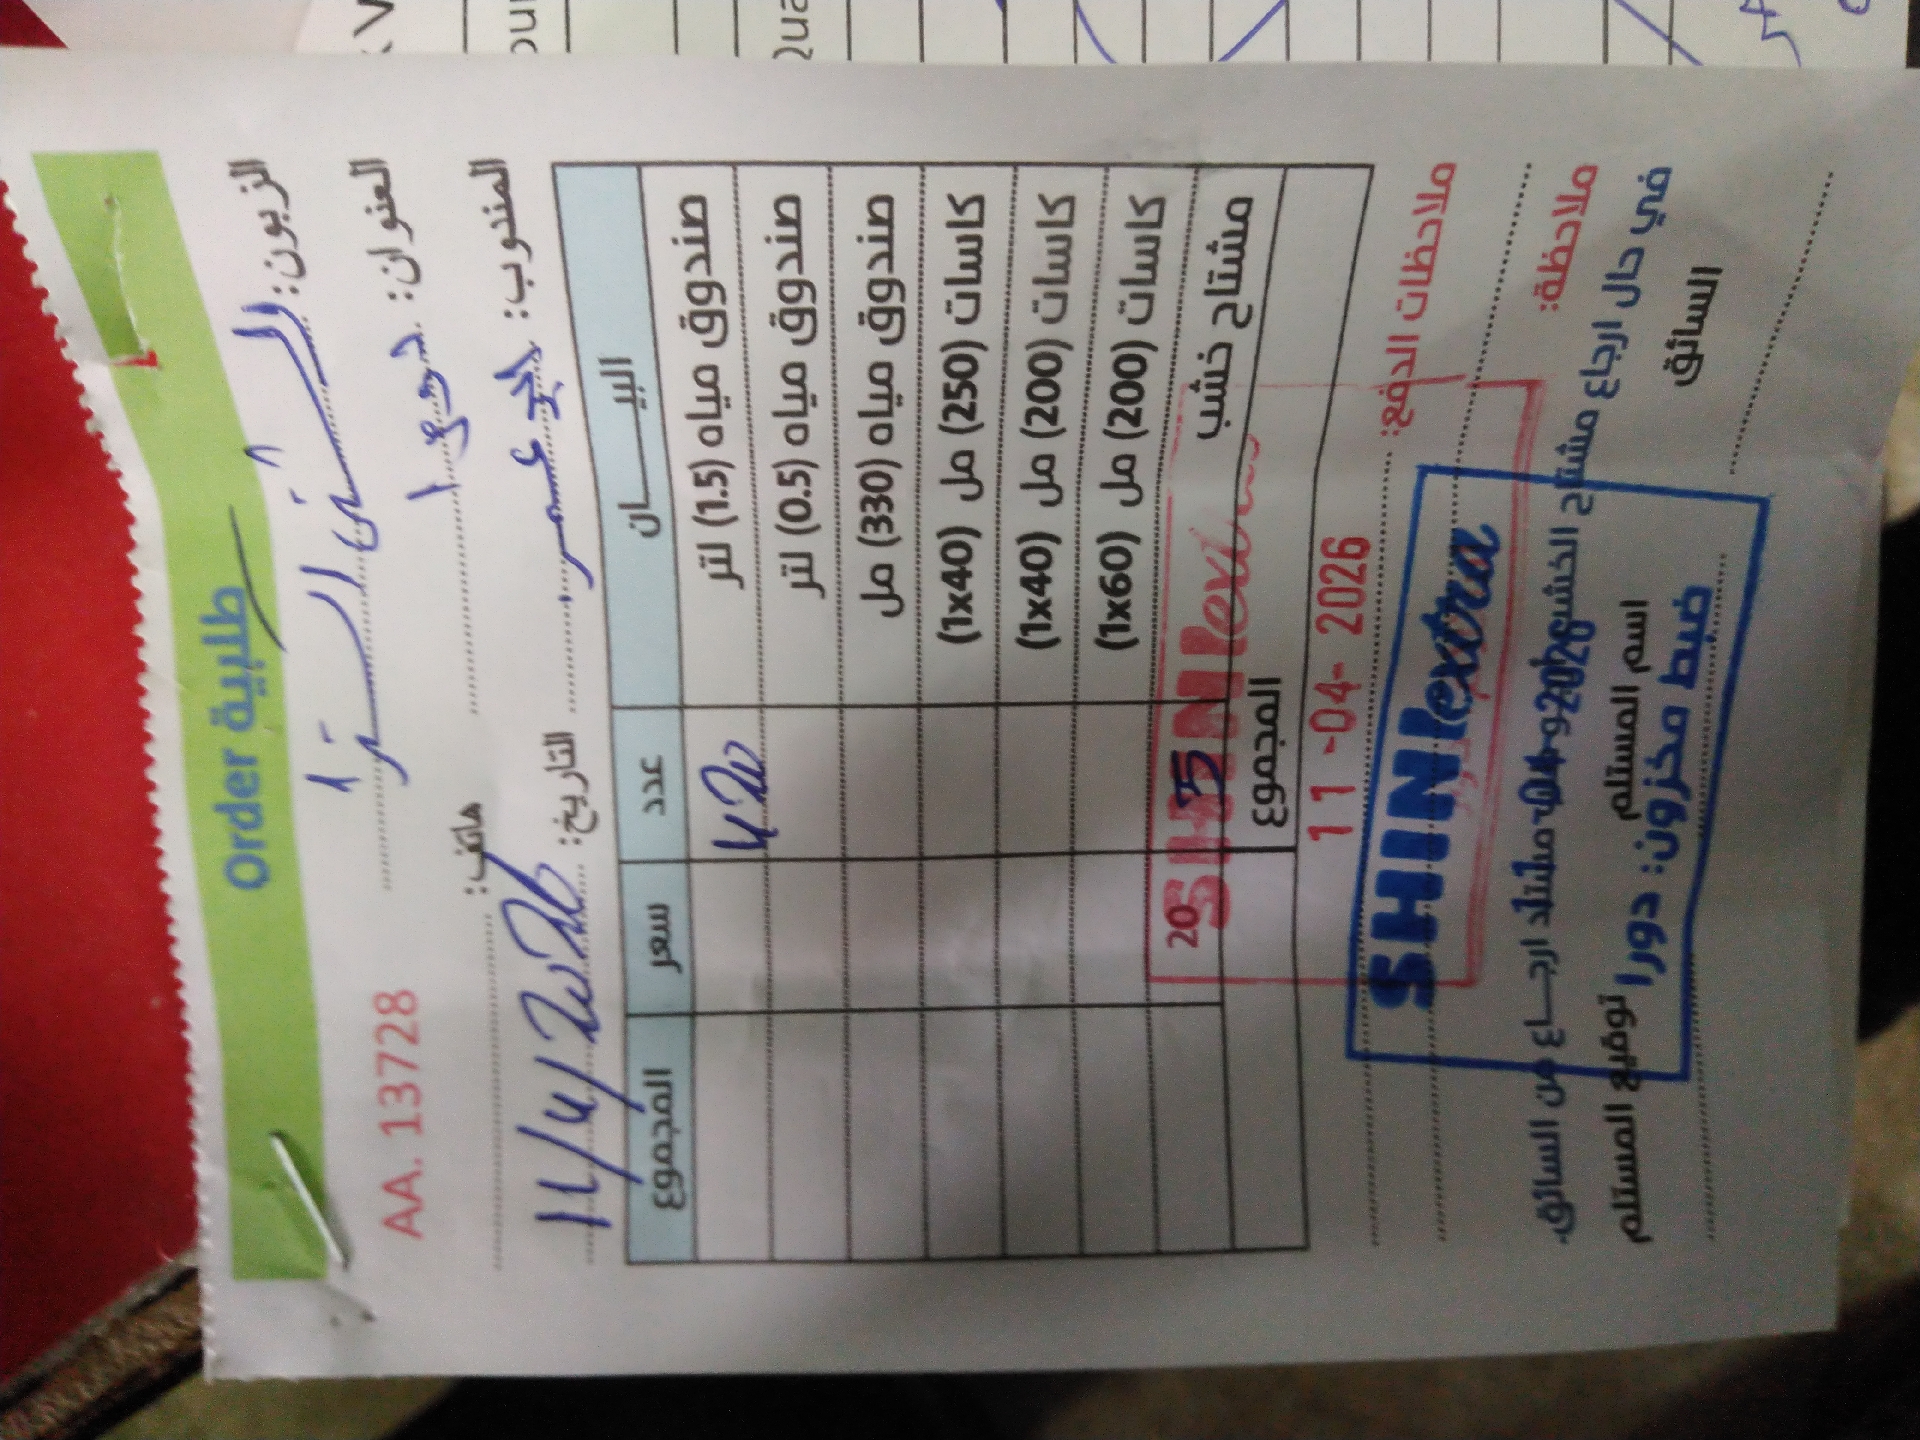 Order طلبية
الزبون:
AA. 13728
العنوان: دورا
هاتف:
المندوب:
التاريخ: 11/4/2026
البيــــان عدد سعر المجموع
صندوق مياه (1.5) لتر
صندوق مياه (0.5) لتر
صندوق مياه (330) مل
كاسات (250) مل (1x40)
كاسات (200) مل (1x40)
كاسات (200) مل (1x60)
مشتاح خشب 20
SHINextra
المجموع
11 -04- 2026
ملاحظات الدفع:
SHINextra
ملاحظة:
في حال ارجاع مشتاح الخشب ارجـــاع من السائق.
السائق
اسم المستلم
توقيع المستلم
ضبط مخزون: دورا